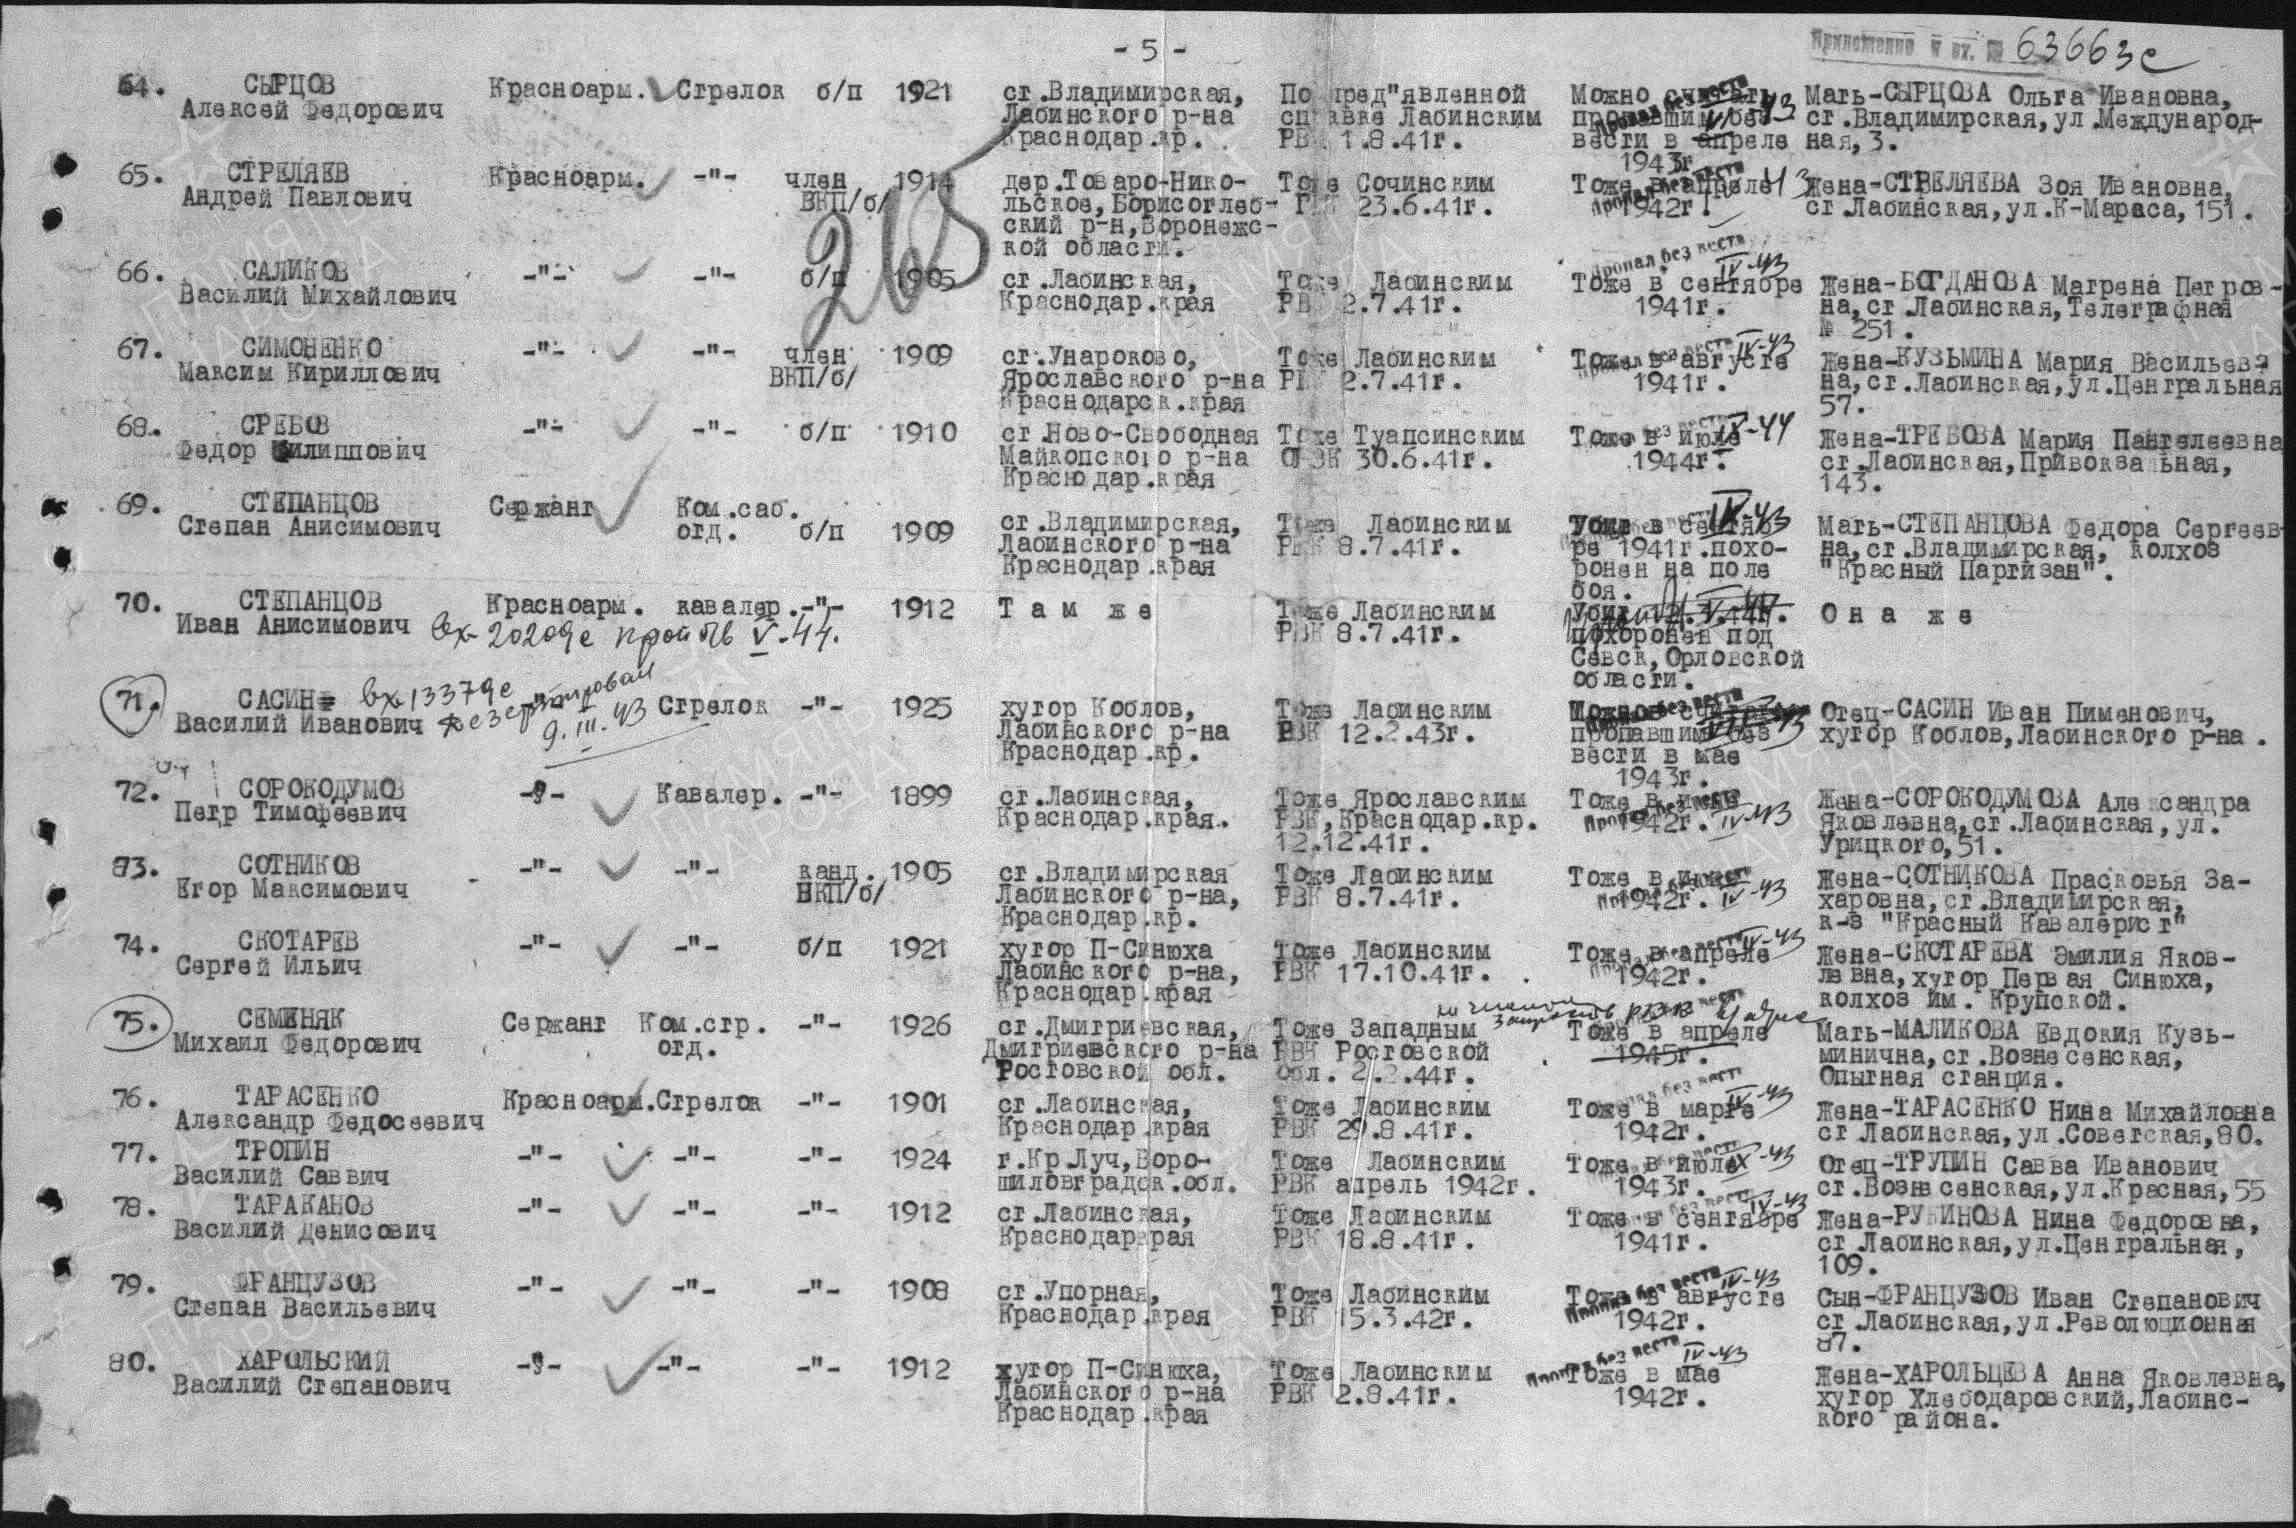 - 5 -
63663с
64. СЫРЦОВ Алексей Федорович Красноарм. Стрелок б/п 1921 ст.Владимирская, Лабинского р-на Краснодар.кр. По пред"явленной справке Лабинским РВК 1.8.41г. Можно считать пропавшим без вести в апреле 1943г. Мать-СЫРЦОВА Ольга Ивановна, ст.Владимирская,ул.Международ-ная,3.
65. СТРЕЛЯЕВ Андрей Павлович Красноарм. -"- член ВКП/б/ 1914 дер.Товаро-Нико-льское,Борисоглеб-ский р-н,Воронежс-кой области. Тоже Сочинским РВК 23.6.41г. Тоже в апреле 1942г. Жена-СТРЕЛЯЕВА Зоя Ивановна, ст.Лабинская,ул.К-Маркса,151.
265
66. САЛИКОВ Василий Михайлович -"- -"- б/п 1905 ст.Лабинская, Краснодар.края Тоже Лабинским РВК 2.7.41г. Пропал без вести IV-43 Тоже в сентябре 1941г. Жена-БОГДАНОВА Матрена Петров-на,ст.Лабинская,Телеграфная № 251.
67. СИМОНЕНКО Максим Кириллович -"- -"- член ВКП/б/ 1909 ст.Унароково, Ярославского р-на Краснодарск.края Тоже Лабинским РВК 2.7.41г. IV-43 Тоже в августе 1941г. Жена-КУЗЬМИНА Мария Васильев-на,ст.Лабинская,ул.Центральная 57.
68. СРЕБОВ Федор Филиппович -"- -"- б/п 1910 ст.Ново-Свободная Майкопского р-на Краснодар.края Тоже Туапсинским 30.6.41г. Тоже в июле 1944г. Жена-ТРЕБОВА Мария Пантелеевна ст.Лабинская,Привокзальная, 143.
69. СТЕПАНЦОВ Степан Анисимович Сержант Ком.саб. отд. б/п 1909 ст.Владимирская, Лабинского р-на Краснодар.края Тоже Лабинским РВК 8.7.41г. IV-43 Убит в сентяб-ре 1941г.похо-ронен на поле боя. Мать-СТЕПАНЦОВА Федора Сергеев-на,ст.Владимирская, колхоз "Красный Партизан".
70. СТЕПАНЦОВ Иван Анисимович Красноарм. кавалер. -"- 1912 Т а м ж е Тоже Лабинским РВК 8.7.41г. похоронен под Севск,Орловской области. О н а ж е
вх-20209с V-44.
71. САСИН Василий Иванович Стрелок -"- 1925 хутор Коблов, Лабинского р-на Краснодар.кр. Тоже Лабинским РВК 12.2.43г. Можно считать пропавшим без вести в мае 1943г. Отец-САСИН Иван Пименович, хутор Коблов,Лабинского р-на.
вх-13379с дезертировал 9.III.43
72. СОРОКОДУМОВ Петр Тимофеевич -"- Кавалер. -"- 1899 ст.Лабинская, Краснодар.края. Тоже Ярославским РВК,Краснодар.кр. 12.12.41г. Тоже в 1942г. IV-43 Жена-СОРОКОДУМОВА Александра Яковлевна,ст.Лабинская,ул. Урицкого,51.
83. СОТНИКОВ Егор Максимович -"- -"- канд. ВКП/б/ 1905 ст.Владимирская Лабинского р-на, Краснодар.кр. Тоже Лабинским РВК 8.7.41г. Тоже в 1942г. IV-43 Жена-СОТНИКОВА Прасковья За-харовна,ст.Владимирская, к-з "Красный Кавалерист"
74. СКОТАРЕВ Сергей Ильич -"- -"- б/п 1921 хутор П-Синюха Лабинского р-на, Краснодар.края Тоже Лабинским РВК 17.10.41г. IV-43 Тоже в апреле 1942г. Жена-СКОТАРЕВА Эмилия Яков-левна,хутор Первая Синюха, колхоз им. Крупской.
75. СЕМЕНЯК Михаил Федорович Сержант Ком.стр. отд. -"- 1926 ст.Дмитриевская, Дмитриевского р-на Ростовской обл. Тоже Западным РВК Ростовской обл. 2.2.44г. Тоже в апреле 1945г. Мать-МАЛИКОВА Евдокия Кузь-минична,ст.Вознесенская, Опытная станция.
76. ТАРАСЕНКО Александр Федосеевич Красноарм. Стрелок -"- 1901 ст.Лабинская, Краснодар.края Тоже Лабинским РВК 29.8.41г. IV-43 Тоже в марте 1942г. Жена-ТАРАСЕНКО Нина Михайловна ст.Лабинская,ул.Советская,80.
77. ТРОПИН Василий Саввич -"- -"- -"- 1924 г.Кр.Луч,Воро-шиловградск.обл. Тоже Лабинским РВК апрель 1942г. Тоже в июле 1943г. Отец-ТРУПИН Савва Иванович ст.Вознесенская,ул.Красная,55
78. ТАРАКАНОВ Василий Денисович -"- -"- -"- 1912 ст.Лабинская, Краснодаркрая Тоже Лабинским РВК 18.8.41г. IV-43 Тоже в сентябре 1941г. Жена-РУБИНОВА Нина Федоровна, ст.Лабинская,ул.Центральная, 109.
79. ФРАНЦУЗОВ Степан Васильевич -"- -"- -"- 1908 ст.Упорная, Краснодар.края Тоже Лабинским РВК 15.3.42г. Пропал без вести IV-43 Тоже в августе 1942г. Сын-ФРАНЦУЗОВ Иван Степанович ст.Лабинская,ул.Революционная 87.
80. ХАРОЛЬСКИЙ Василий Степанович -"- -"- -"- 1912 хутор П-Синюха, Лабинского р-на Краснодар.края Тоже Лабинским РВК 2.8.41г. Пропал без вести IV-43 Тоже в мае 1942г. Жена-ХАРОЛЬЦЕВА Анна Яковлевна, хутор Хлебодаровский,Лабинс-кого района.